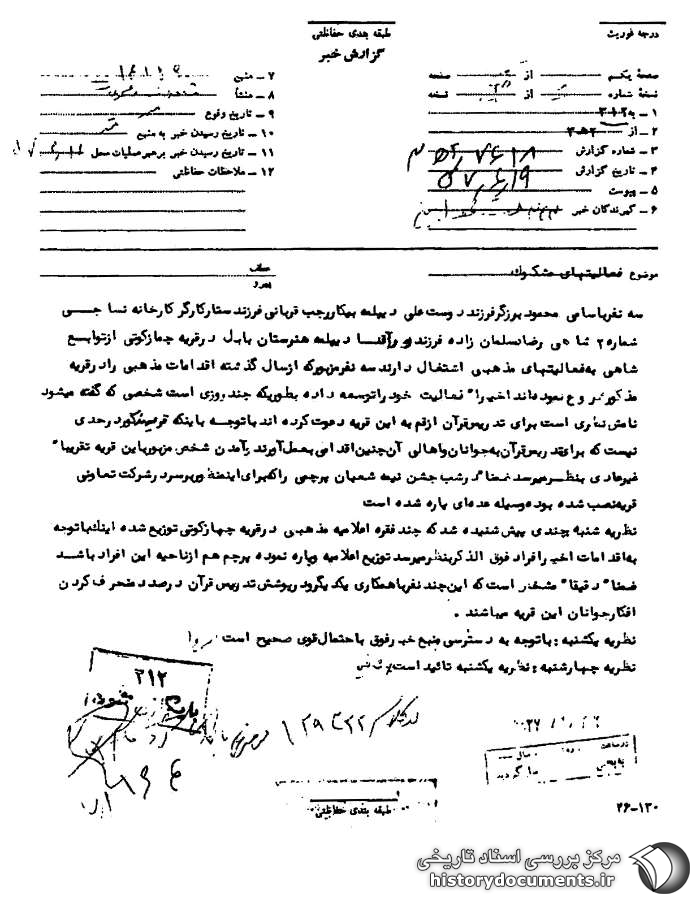 درجه فوریت
طبقه بندی حفاظتی
گزارش خبر
صفحهٔ یکم از صفحه
نسخهٔ شماره از نسخه
۱ ـ به ۳۱۲
۲ ـ از
۳ ـ شماره گزارش
۴ ـ تاریخ گزارش
۵ ـ پیوست
۶ ـ گیرندگان خبر
۷ ـ منبع
۸ ـ منشأ
۹ ـ تاریخ وقوع
۱۰ ـ تاریخ رسیدن خبر به منبع
۱۱ ـ تاریخ رسیدن خبر برهبر عملیات محل
۱۲ ـ ملاحظات حفاظتی
موضوع فعالیتهای مشکوک
عطف
پیرو
سه نفر باسامی محمود برزگر فرزند دوست علی دیپلمه بیکار رجب قربانی فرزند ستار کارگر کارخانه نساجی
شماره ۲ شاهی رضا سلمان زاده فرزند دیپلمه هنرستان بابل در قریه چهارکوتی از توابع
شاهی به فعالیتهای مذهبی اشتغال دارند سه نفر مزبور که از سال گذشته اقدامات مذهبی را در قریه
مذکور شروع نموده‌اند اخیرا" فعالیت خود را توسعه داده بطوریکه چند روزی است شخصی که گفته میشود
نامش نظری است برای تدریس قرآن از قم به این قریه دعوت کرده اند با توجه باینکه قریه مذکور در حدی
نیست که برای تدریس قرآن به جوانان و اهالی آن چنین اقدامی بعمل آورند آمدن شخص مزبور باین قریه تقریبا"
غیرعادی بنظر میرسد ضمنا" در شب جشن نیمه شعبان پرچمی را که برای اینمنظور بر سر در شرکت تعاونی
قریه نصب شده بود بوسیله عده‌ای پاره شده است
نظریه شنبه چندی پیش شنیده شد که چند فقره اعلامیه مذهبی در قریه چهارکوتی توزیع شده اینک با توجه
به اقدامات اخیر افراد فوق الذکر بنظر میرسد توزیع اعلامیه و پاره نموده پرچم هم از ناحیه این افراد باشد
ضمنا" دقیقا" مشخص است که این چند نفر با همکاری یکدیگر و در پوشش تدریس قرآن در صدد منحرف کردن
افکار جوانان این قریه میباشند .
نظریه یکشنبه : با توجه به دسترسی منبع خبر فوق با احتمال قوی صحیح است
نظریه چهارشنبه : نظریه یکشنبه تائید است
۳۱۲
طبقه بندی حفاظتی
۲۶-۱۳۰
مرکز بررسی اسناد تاریخی
historydocuments.ir